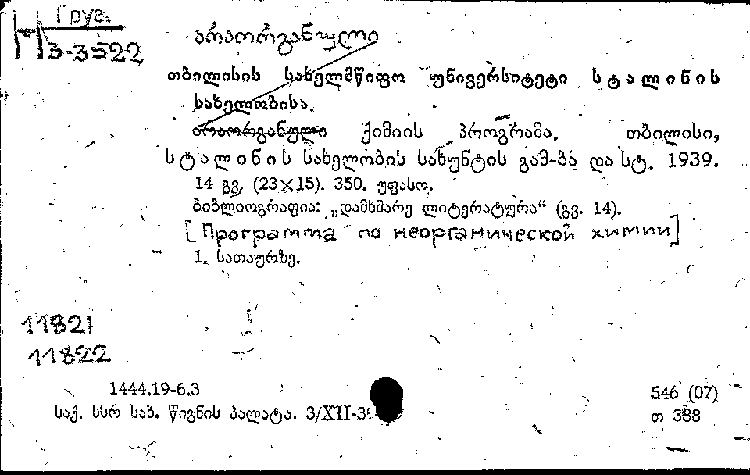 Груз.
Н 3-3522
არაორგანული
თბილისის სახელმწიფო უნივერსიტეტი სტალინის
სახელობისა.
არაორგანული ქიმიის პროგრამა. თბილისი,
სტალინის სახელობის სახუნტის გამ-ბა და სტ. 1939.
14 გვ. (23×15). 350. უფასო.
ბიბლიოგრაფია: „დამხმარე ლიტერატურა“ (გვ. 14).
[Программа по неорганической химии]
1. სათაურზე.
11821
11822
1444.19-6.3
546 (07)
საქ. სსრ სახ. წიგნის პალატა. 3/XII-39
თ 388